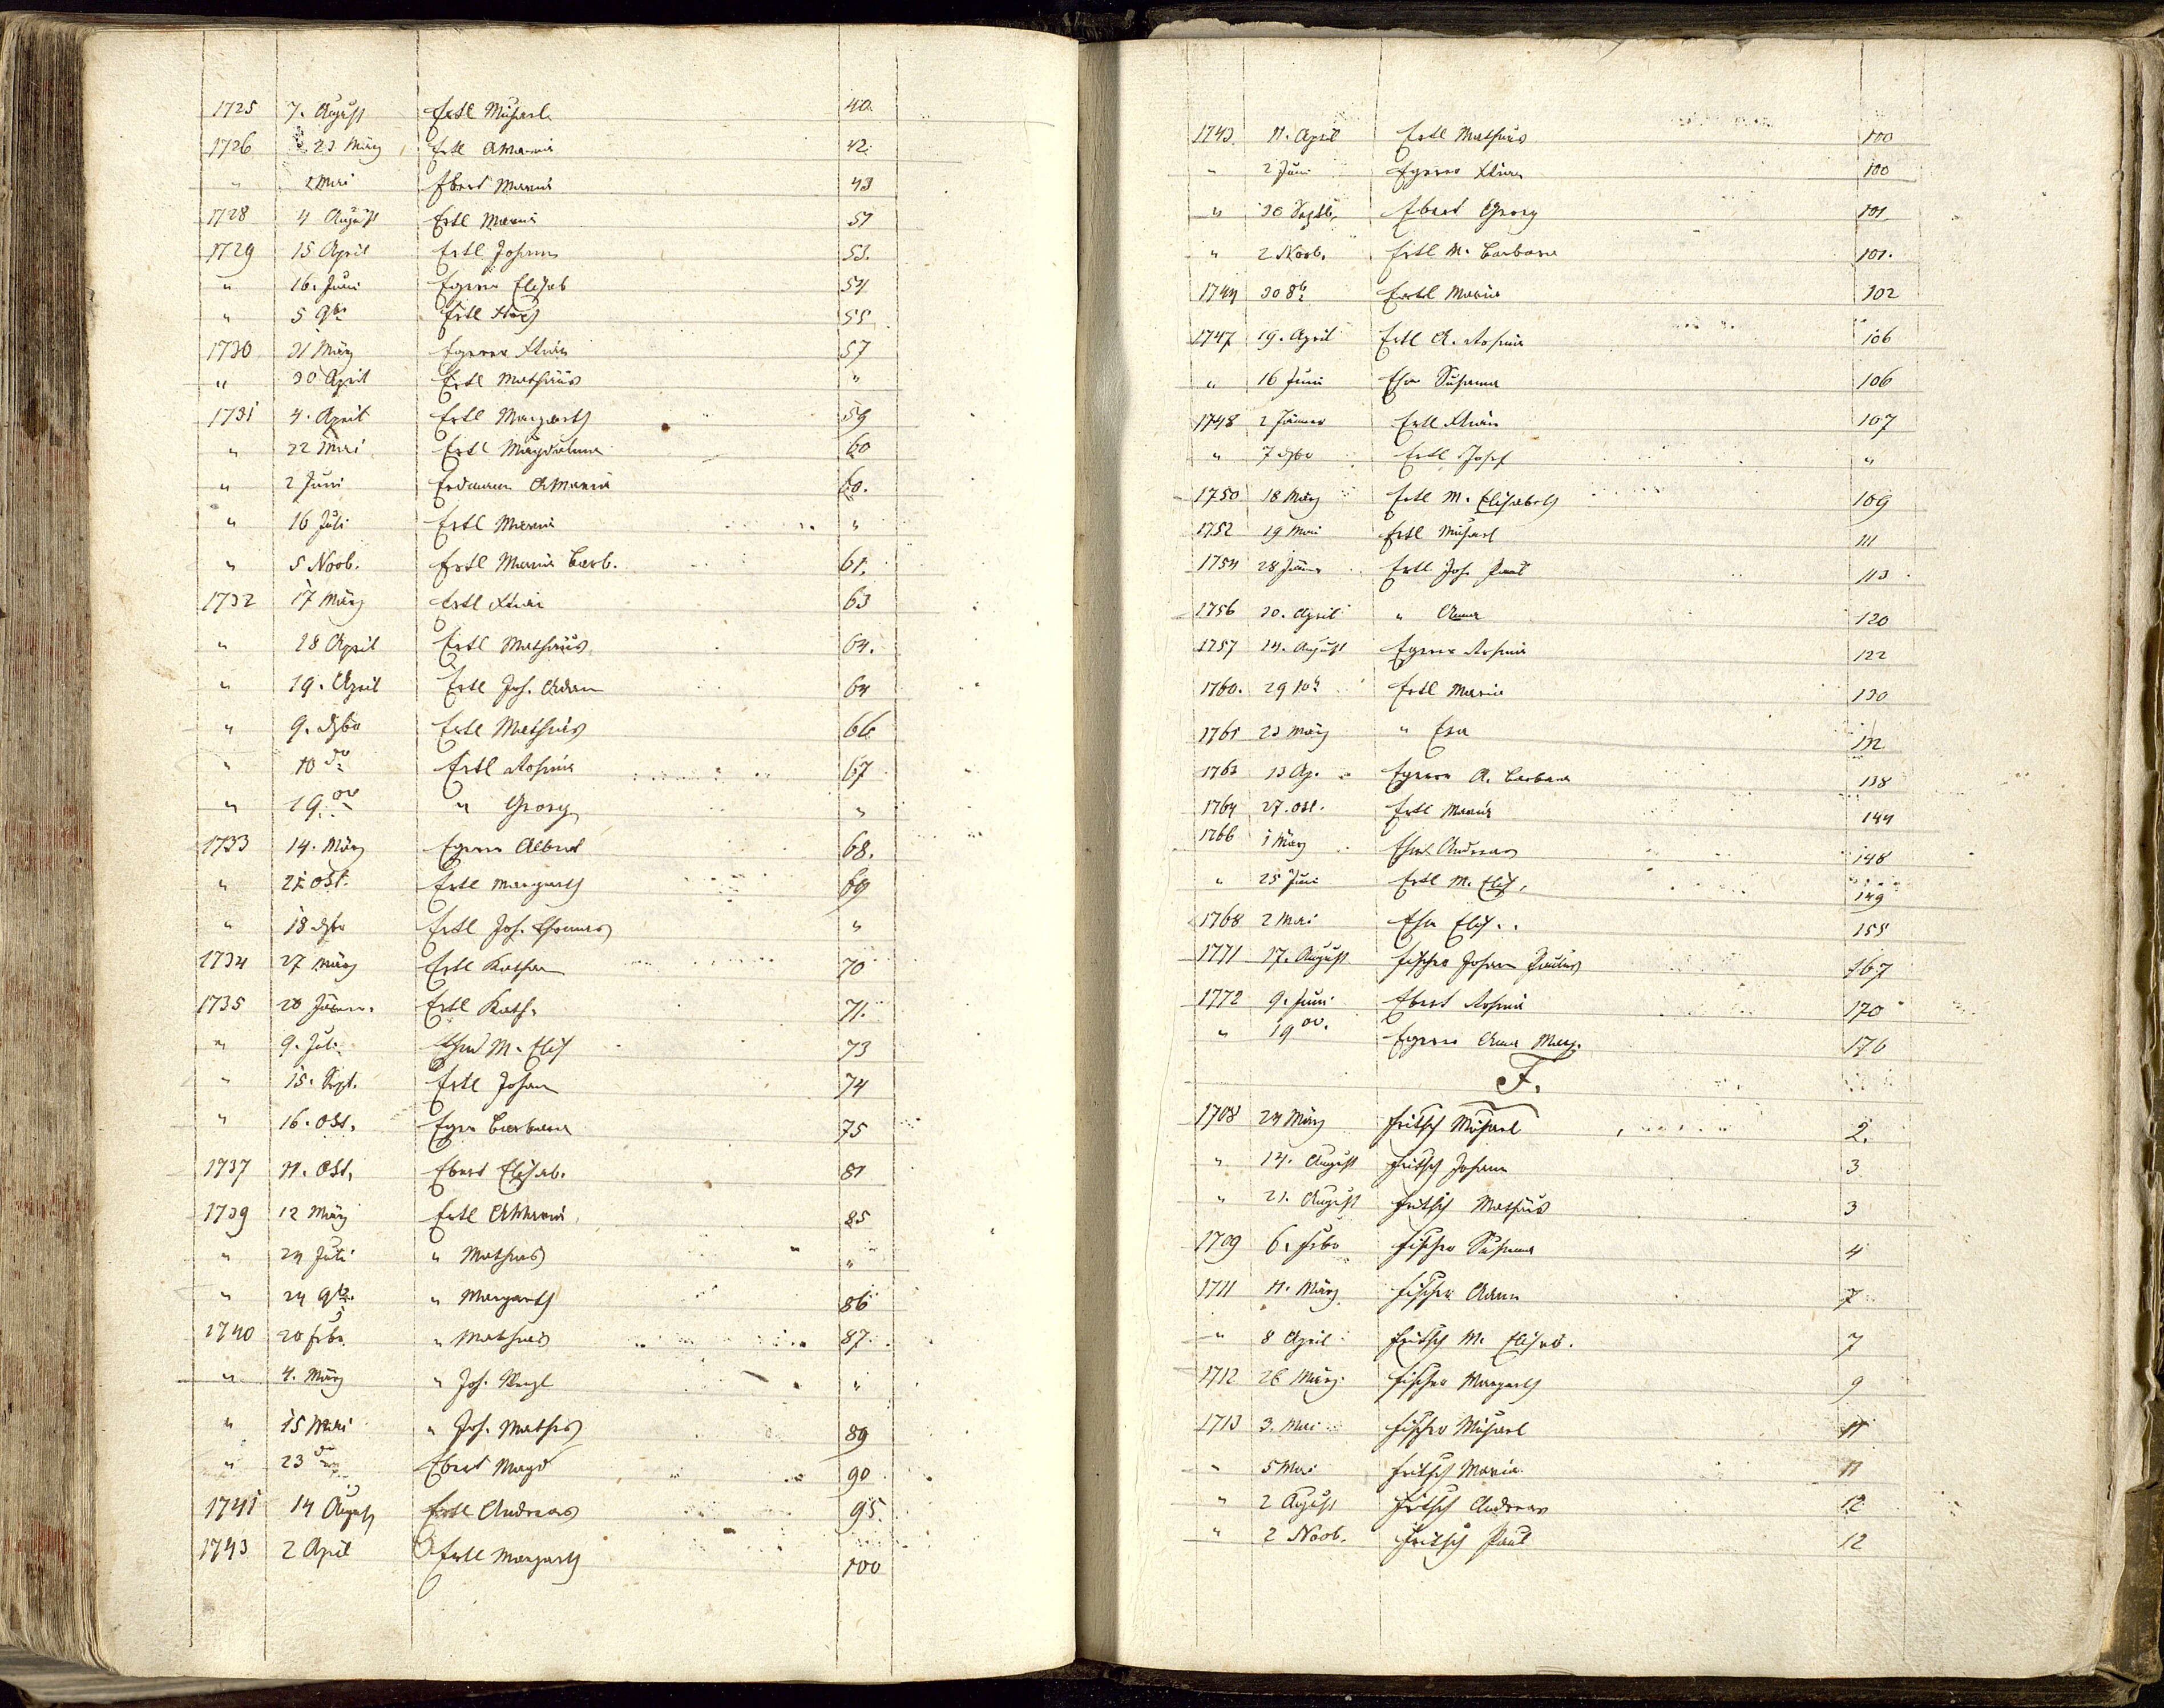 1725 7. August Ertl Michael 40.
1726 23 März Ertl AMaria 42.
" 2 Mai Ebert Maria 43
1728 4 August Ertl Maria 51
1729 15 April Ertl Johann 53.
" 16. Juni Egerer Elisab 54
" 5 9br Ertl 55
1730 31 März Egerer 57
" 30 April Ertl Mathäus "
1731 4. April Ertl Margareth 59
" 22 Mai Ertl Magdalena 60
" 2 Juni Erdmann AMaria 60.
" 16 Juli Ertl Maria "
" 5 Novb. Ertl Maria Barb. 61.
1732 17 März Ertl 63
" 28 April Ertl Mathäus 64.
" 19. April Ertl Joh. Adam 64
" 9. Ertl Mathias 66
" 10 do Ertl Rosina 67
" 19. do " Georg "
1733 14. März Egerer Albert 68.
" 21 Okt. Ertl Margareth 69
" 18 Ertl Joh. Thomas "
1734 27 März Ertl Kathar 70
1735 28 Jänner. Ertl Kath. 71.
" 9. Juli M. Elis 73
" 15. Sept. Ertl Johann 74
" 16. Okt. Barbara 75
1737 11. Okt. Ebert Elisab. 81
1739 12 März Ertl AMaria 85
" 24 Juli " Mathias "
" 24 9br. " Margareth 86
1740 20 Febr. " Mathias 87.
" 4. März " Joh. "
" 15 Mai " Joh. Mathes 89
" 23 do Ebert Magd 90
1741 14 August Ertl Andreas 95.
1743 2 April Ertl Margareth 100
1743. 11. April Ertl Mathias 100
" 2 Juni Egerer 100
" 30 Septb. Ebert Georg 101
" 2 Novb. Ertl M. Barbara 101.
1744 30 8br Ertl Maria 102
1747 19. April Ertl A. Rosina 106
" 16 Juni Susanna 106
1748 2 Jänner Ertl 107
" 7 Ertl Josef "
1750 18 März Ertl M. Elisabeth 109
1752 19 Mai Ertl Michael 111
1754 28 Jänner Ertl Joh. Paul 113
1756 30. April " Anna 120
1757 14. August Egerer Rosina 122
1760. 29 10br Ertl Maria 130
1761 23 März " Eva
1763 13 Ap. Egerer A. Barbara 138
1764 27. Okt. Ertl Maria 144
1766 1 März Andreas 148
" 25 Juni Ertl M. Elis. 149
1768 2 Mai Elis. 155
1771 17. August Johann Paulus 167
1772 9. Juni Ebert Rosina 170
" 19 do. Egerer Anna Marg. 176
F.
1708 24 März Fritsch Michael 2.
" 14. August Fritsch Johann 3
" 21. August Fritsch Mathias 3
1709 6. Febr Fischer Susanna 4
1711 11. März Fischer Adam 7
" 8 April Fritsch M. Elisab. 7
1712 26 März Fischer Margareth 9
1713 3. Mai Fischer Michael 11
" 5 Mai Fritsch Maria 11
" 2 August Fritsch Andreas 12
" 2 Novb. Fritsch Paul 12